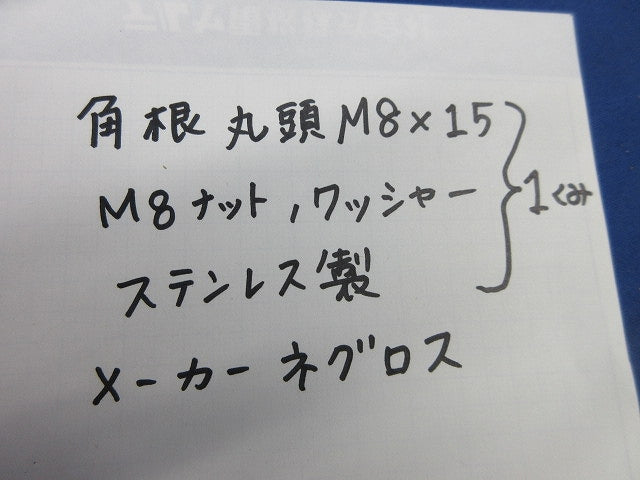 角根丸頭M8×15
M8ナット,ワッシャー
ステンレス製
1くみ
メーカーネグロス